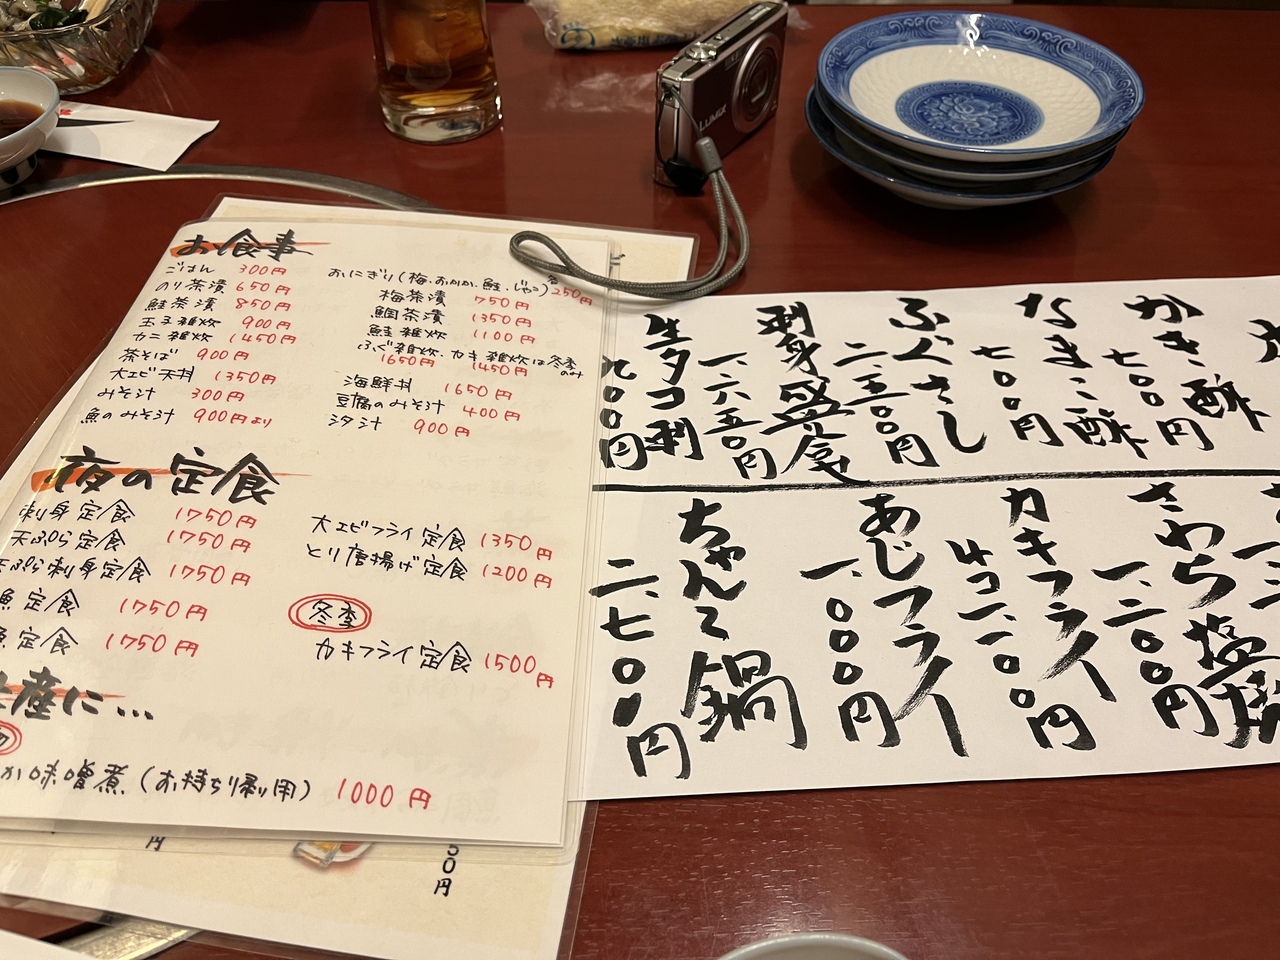 お食事
ごはん 300円
のり茶漬 650円
鮭茶漬 850円
玉子雑炊 900円
カニ雑炊 1450円
茶そば 900円
大エビ天丼 1350円
みそ汁 300円
魚のみそ汁 900円より
おにぎり(梅.おかか.鮭.じゃこ)各250円
梅茶漬 750円
鯛茶漬 1350円
鮭雑炊 1100円
ふぐ雑炊.カキ雑炊は冬季のみ
1650円 1450円
海鮮丼 1650円
豆腐のみそ汁 400円
シタ汁 900円
夜の定食
刺身定食 1750円
天ぷら定食 1750円
天ぷら刺身定食 1750円
魚定食 1750円
魚定食 1750円
大エビフライ定食 1350円
とり唐揚げ定食 1200円
冬季
カキフライ定食 1500円
土産に...
か味噌煮(お持ち帰り用) 1000円
円
50円
かき酢
七〇〇円
なまこ酢
七〇〇円
ふぐさし
二、五〇〇円
刺身盛合
一、六五〇円
生タコ刺
九〇〇円
さわら塩焼
一、二〇〇円
カキフライ
4コ 一、一〇〇円
あじフライ
一、〇〇〇円
ちゃんこ鍋
二、七〇〇円
LUMIX